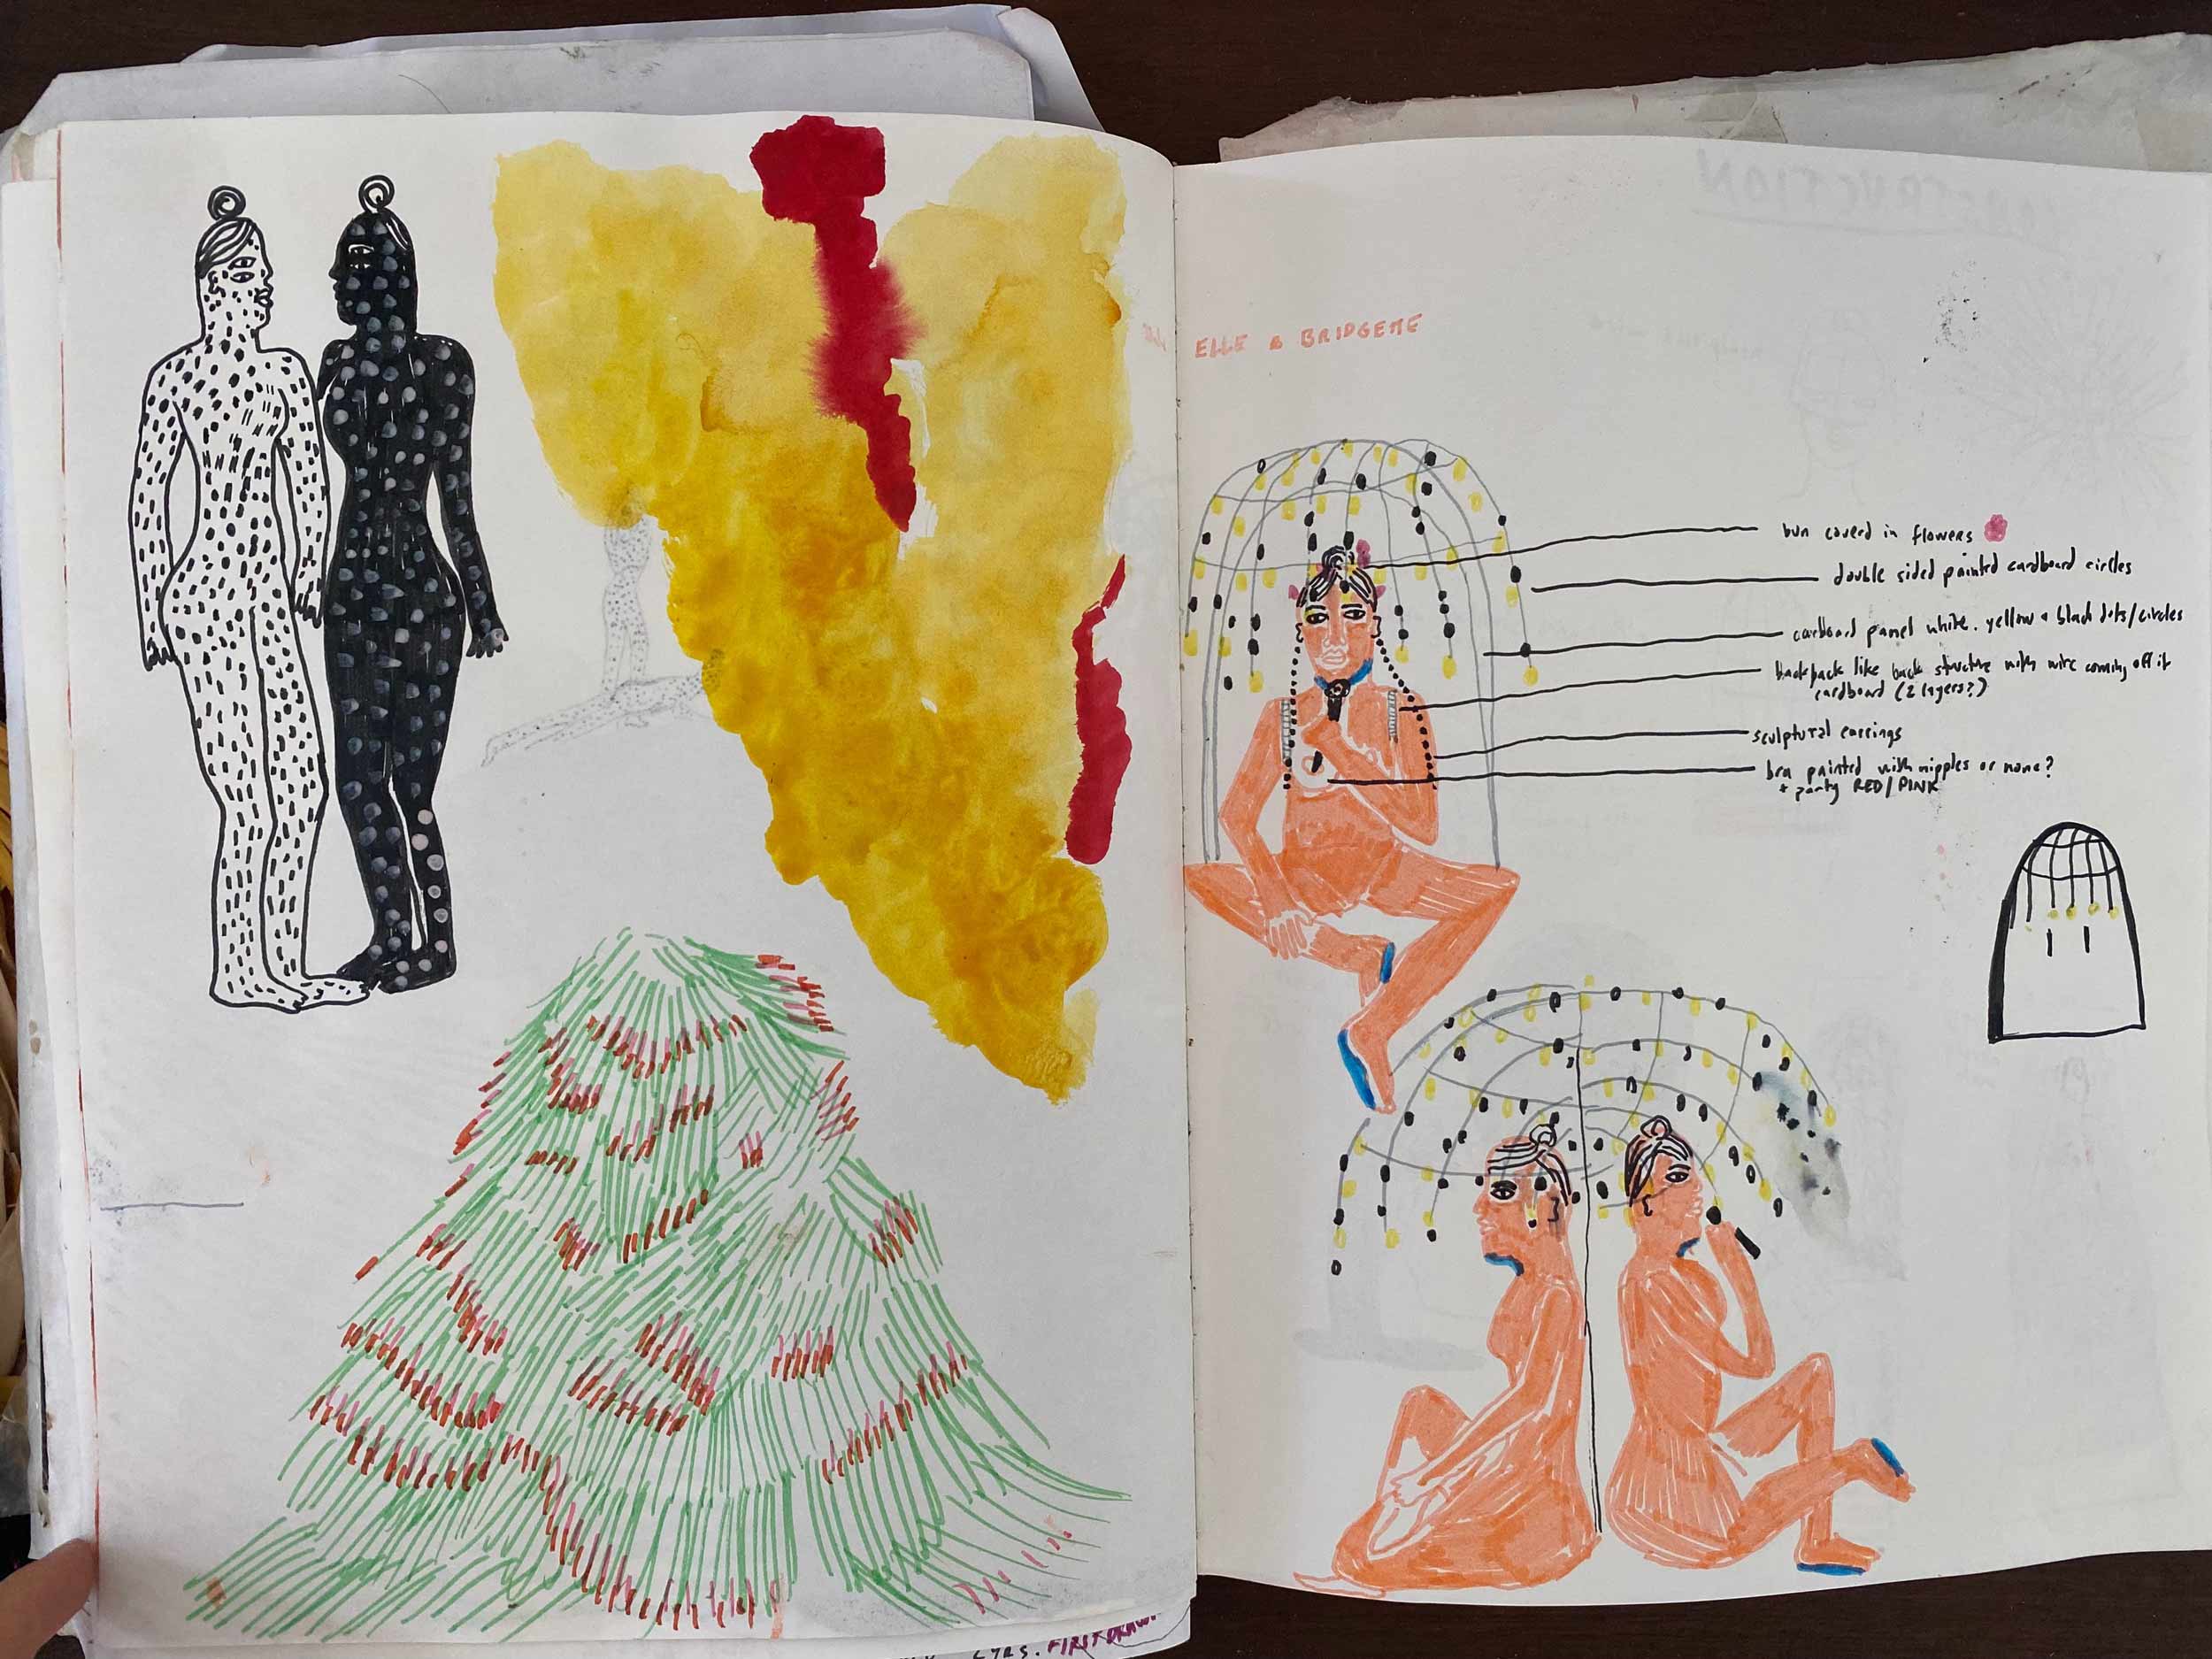 ELLE & BRIDGETTE
bun coverd in flowers
double sided painted cardboard circles
cardboard panel white. yellow & black dots/circles
backpack like back structure with wire coming off it
cardboard (2 layers?)
sculptural earrings
bra painted with nipples or none?
+ panty RED/PINK
FIRST DRAW